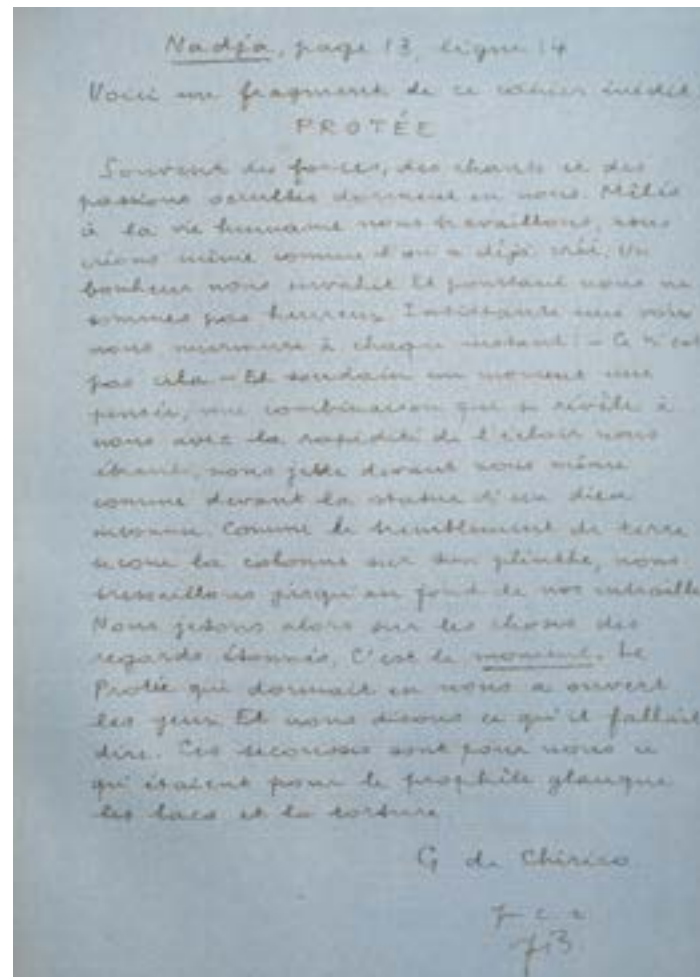 Nadja, page 13, ligne 14
Voici un fragment de ce cahier inédit :
PROTÉE
Souvent des forces, des chants et des
passions occultes dorment en nous. Mêlés
à la vie humaine nous travaillons, nous
créons même comme l'on a déjà créé, Un
bonheur nous envahit Et pourtant nous ne
sommes pas heureux Insistante une voix
nous murmure à chaque instant : - Ce n'est
pas cela - Et soudain un moment une
pensée, une combinaison que se révèle à
nous avec la rapidité de l'éclair nous
ébranle, nous jette devant nous même
comme devant la statue d'un dieu
inconnu. Comme le tremblement de terre
secoue la colonne sur son plinthe, nous
tressaillons jusqu'au fond de nos entrailles
Nous jetons alors sur les choses des
regards étonnés, C'est le moment. Le
Protée qui dormait en nous a ouvert
les yeux Et nous disons ce qu'il fallait
dire. Ces secousses sont pour nous ce
qu'étaient pour le prophète glauque
les lacs et la torture
G de Chirico